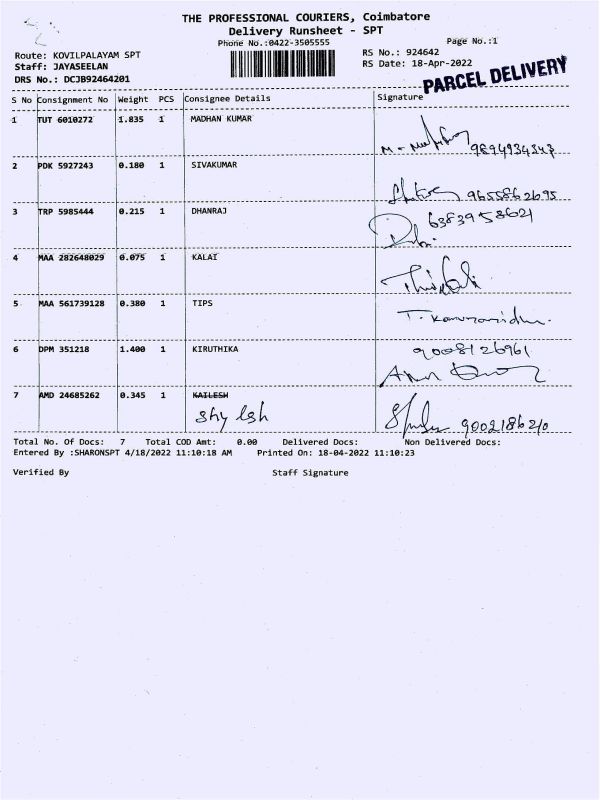 THE PROFESSIONAL COURIERS, Coimbatore
Delivery Runsheet - SPT
Phone No.:0422-3505555 Page No.:1
Route: KOVILPALAYAM SPT RS No.: 924642
Staff: JAYASEELAN RS Date: 18-Apr-2022
DRS No.: DCJB92464201 PARCEL DELIVERY
S No Consignment No Weight PCS Consignee Details Signature
1 TUT 6010272 1.835 1 MADHAN KUMAR
9894934343
2 PDK 5927243 0.180 1 SIVAKUMAR
9655862695
3 TRP 5985444 0.215 1 DHANRAJ 6383958621
4 MAA 282648029 0.075 1 KALAI
5 MAA 561739128 0.380 1 TIPS
6 DPM 351218 1.400 1 KIRUTHIKA 9008126961
7 AMD 24685262 0.345 1 KAILESH
Shylesh 9002186210
Total No. Of Docs: 7 Total COD Amt: 0.00 Delivered Docs: Non Delivered Docs:
Entered By :SHARONSPT 4/18/2022 11:10:18 AM Printed On: 18-04-2022 11:10:23
Verified By Staff Signature